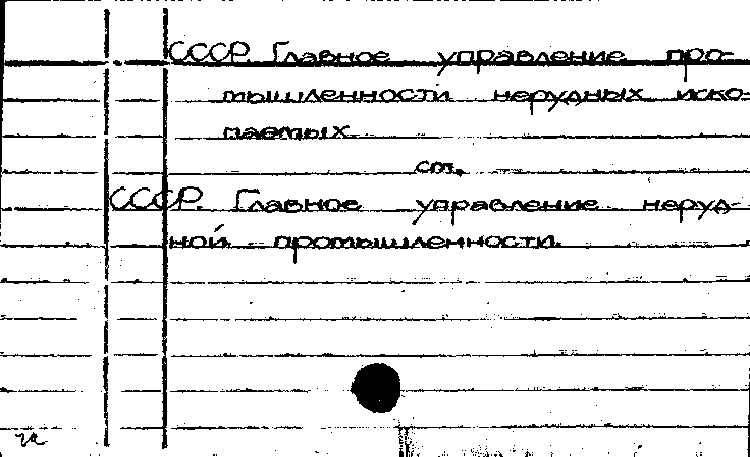 СССР. Главное управление про-
мышленности нерудных иско-
паемых.
см.
СССР. Главное управление неруд-
ной промышленности.